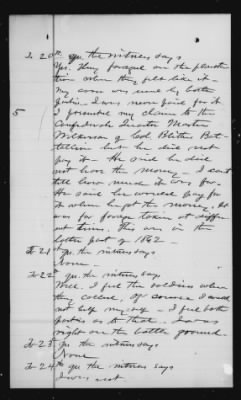 To 20th qu. the witness says
Yes, they foraged on the plantation
tion when they felt like it –
My corn was used by both
parties. I was never paid for it
I presented my claim to the
Confederate Quarter Master
Wilkerson of Col. Blythe Bat-
tallion but he did not
pay it – He said he did
not have the money. I cant
tell how much it was for.
He said he would pay for
it when he got the money. It
was for forage taken at differ-
ent times. This was in the
latter part of 1862 –
To 21st qu. the witness says
None –
To 22nd qu. the witness says
Well, I feed the soldiers when
they called, of course I could
not help myself – I feed both
parties as to that. I was
right on the battle ground.
To 23 qu. the witness says
None
To 24th qu. the witness says
I was not
5